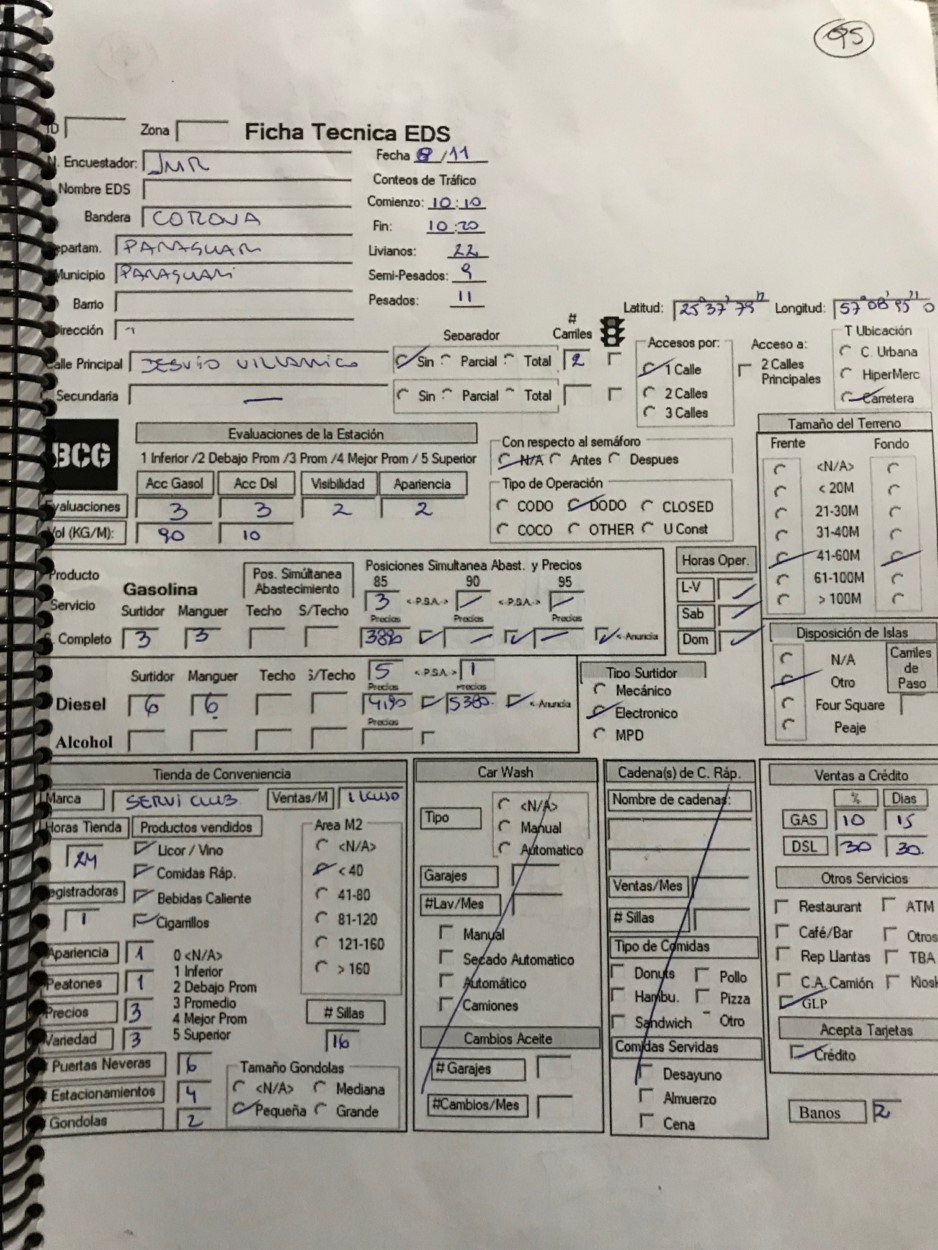 95
ID Zona Ficha Tecnica EDS
N. Encuestador: JMR Fecha 8/11
Nombre EDS Conteos de Tráfico
Bandera CORONA Comienzo: 10:10
Fin: 10:20
Departam. PARAGUARI Livianos: 22
Municipio PARAGUARI Semi-Pesados: 9
Barrio Pesados: 11
Latitud: 25°37'75" Longitud: 57°08'95" 0
Dirección
Separador # Carriles Accesos por: Acceso a: T Ubicación
Calle Principal DESVIO Sin Parcial Total 2 1 Calle 2 Calles Principales C. Urbana
HiperMerc
Secundaria — Sin Parcial Total 2 Calles Carretera
3 Calles
BCG
Evaluaciones de la Estación
1 Inferior /2 Debajo Prom /3 Prom /4 Mejor Prom / 5 Superior
Acc Gasol Acc Dsl Visibilidad Apariencia
Evaluaciones 3 3 2 2
Vol (KG/M): 90 10
Con respecto al semáforo
N/A Antes Despues
Tipo de Operación
CODO DODO CLOSED
COCO OTHER U Const
Tamaño del Terreno
Frente Fondo
<N/A>
< 20M
21-30M
31-40M
41-60M
61-100M
> 100M
Producto Gasolina Pos. Simúltanea Abastecimiento Posiciones Simultanea Abast. y Precios
85 90 95
Servicio 3 <-P.S.A.-> <-P.S.A.->
Surtidor Manguer Techo S/Techo Precios Precios Precios
S. Completo 3 3 <- Anuncia
Horas Oper.
L-V
Sab
Dom
Surtidor Manguer Techo S/Techo 5 <-P.S.A.-> 1
Precios Precios
Diesel 6 6 4190 5380. <- Anuncia
Precios
Alcohol
Tipo Surtidor
Mecánico
Electronico
MPD
Disposición de Islas
N/A
Otro
Four Square
Peaje
Carriles de Paso
Tienda de Conveniencia
Marca SERVI CLUB Ventas/M
Horas Tienda Productos vendidos
24
Licor / Vino
Comidas Ráp.
Bebidas Caliente
Cigarrillos
Registradoras
1
Area M2
<N/A>
< 40
41-80
81-120
121-160
> 160
Apariencia 1
Peatones 1
Precios 3
Variedad 3
0 <N/A>
1 Inferior
2 Debajo Prom
3 Promedio
4 Mejor Prom
5 Superior
# Sillas
16
# Puertas Neveras 6
# Estacionamientos 4
# Gondolas 2
Tamaño Gondolas
<N/A> Mediana
Pequeña Grande
Car Wash
Tipo
<N/A>
Manual
Automatico
Garajes
#Lav/Mes
Manual
Secado Automatico
Automático
Camiones
Cambios Aceite
# Garajes
#Cambios/Mes
Cadena(s) de C. Ráp.
Nombre de cadenas:
Ventas/Mes
# Sillas
Tipo de Comidas
Donuts Pollo
Hambu. Pizza
Sandwich Otro
Comidas Servidas
Desayuno
Almuerzo
Cena
Ventas a Crédito
% Dias
GAS 10 15
DSL 30 30.
Otros Servicios
Restaurant ATM
Café/Bar Otros
Rep Llantas TBA
C.A. Camión Kiosk
GLP
Acepta Tarjetas
Crédito
Banos 2